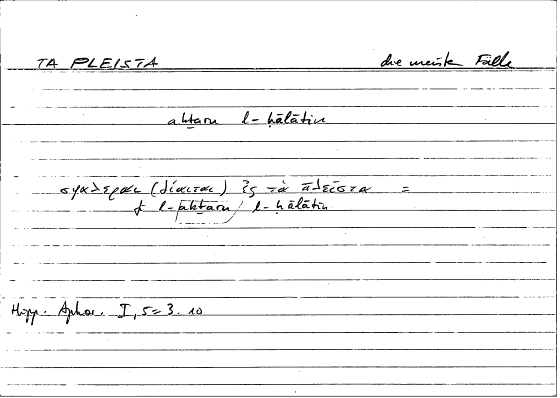 TA PLEISTA die meiste Fälle
akṯaru l-ḥālātin
σφαλεραὶ (δίαιται) ἐς τὰ πλεῖστα =
f l-akṯaru / l-ḥālātin
Hipp. Aphor. I, 5 = 3. 10